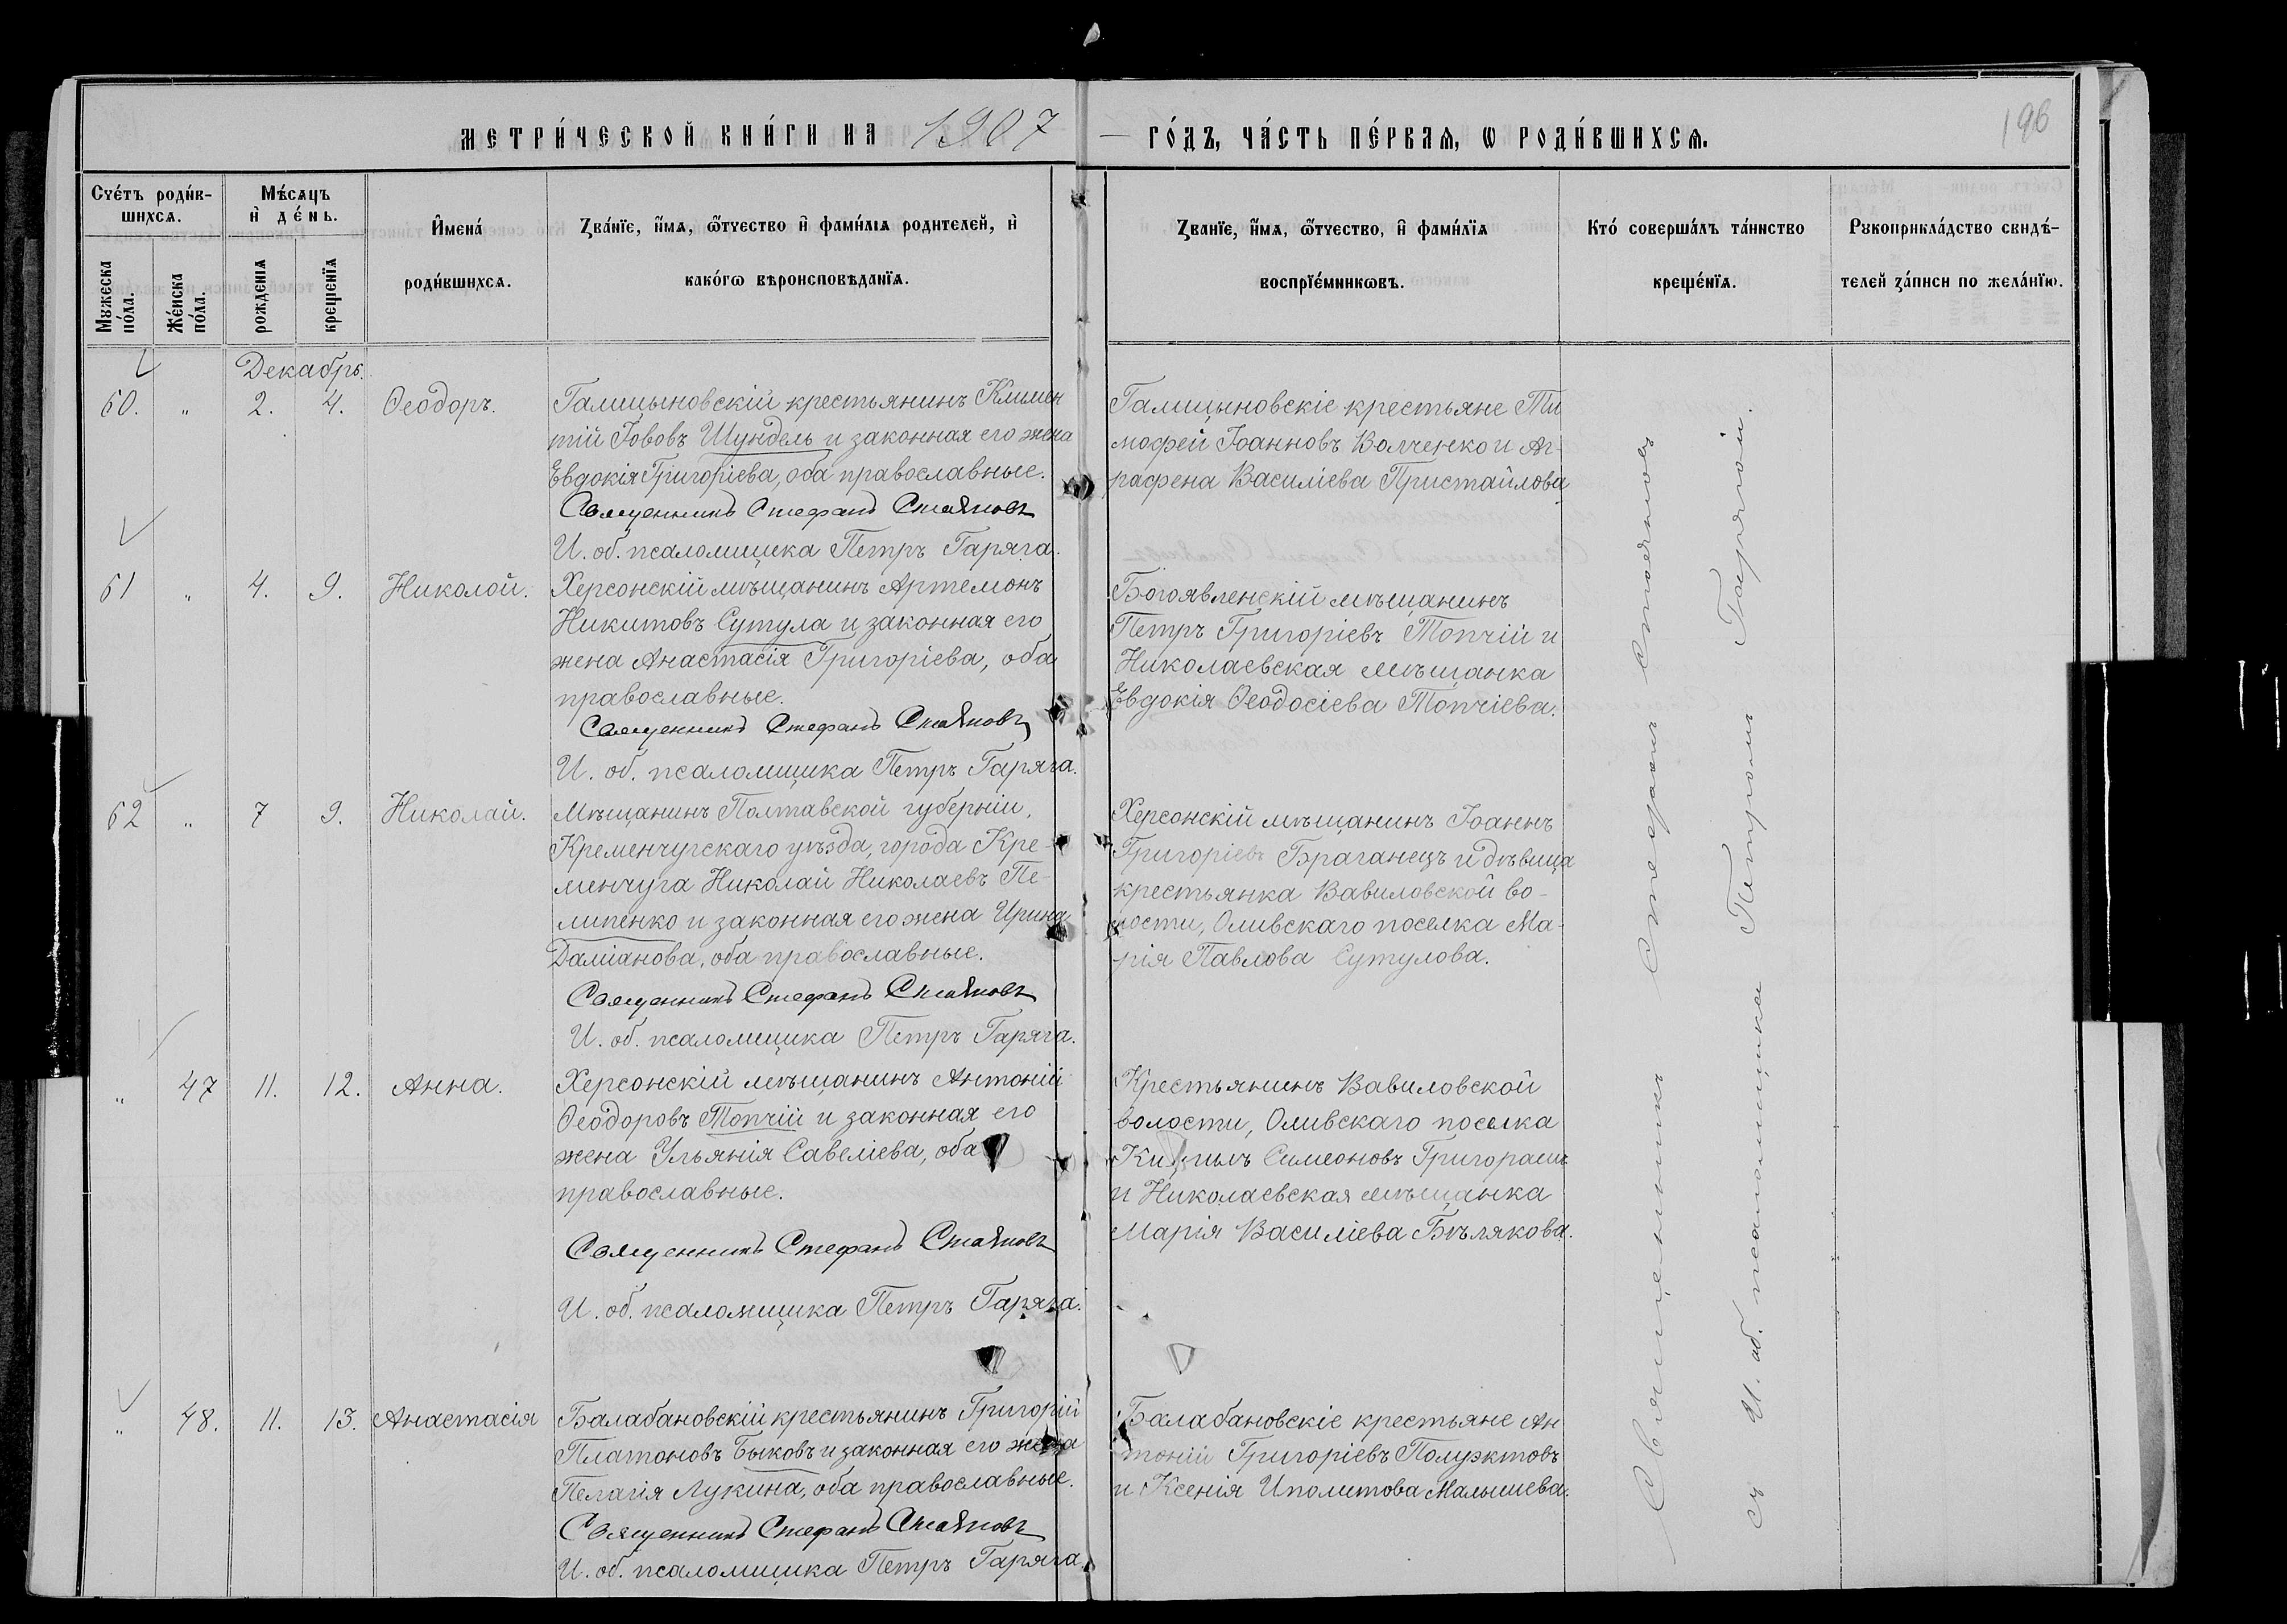 МЕТРИ́ЧЕСКОЙ КНИ́ГИ НА 1907 ГО́ДЪ, ЧА́СТЬ ПЕ́РВАѦ, Ѡ РОДИ́ВШИХСѦ.
196
Счéтъ роди́вшихсѧ.
Мѣ́сѧцъ и҆ де́нь.
И҆мена́ роди́вшихсѧ.
Зва́нїе, и҆́мѧ, ѻ҆́тчество и҆ фами́лїѧ родителей, и҆ како́гѡ вѣроисповѣданїѧ.
Званїе, и҆́мѧ, ѻ҆́тчество, и҆ фами́лїѧ воспрїе́мникѡвъ.
Кто́ соверша́лъ та́инство креще́нїѧ.
Рукоприкла́дство свидѣ́телей за́писи по жела́нїю.
Мужеска по́ла.
Же́нска по́ла.
рожденїѧ
крещенїѧ
Декабрь.
60. „ 2. 4. Ѳеодоръ.
Галицыновскій крестьянинъ Климен
тій Іововъ Шундель и законная его жена
Евдокія Григоріева, оба православные.
Священникъ Стефанъ Стояновъ
И. об. псаломщика Петръ Гаряга.
Галицыновскіе крестьяне Ти
мофей Іоанновъ Волченко и Аг-
рафена Василіева Пристайлова
61 „ 4. 9. Николой.
Херсонскій мѣщанинъ Артемонъ
Никитовъ Сутула и законная его
жена Анастасія Григоріева, оба
православные.
Священникъ Стефанъ Стояновъ
И. об. псаломщика Петръ Гаряга.
Богоявленскій мѣщанинъ
Петръ Григоріевъ Топчій и
Николаевская мѣщанка
Евдокія Ѳеодосіева Топчіева.
62 „ 7 9. Николай.
Мѣщанинъ Полтавской губерніи,
Кременчугскаго уѣзда, города Кре-
менчуга Николай Николаевъ Пе-
липенко и законная его жена Ирина
Даміанова, оба православные.
Священникъ Стефанъ Стояновъ
И. об. псаломщика Петръ Гаряга.
Херсонскій мѣщанинъ Іоаннъ
Григоріевъ Браганецъ и дѣвица
крестьянка Вавиловской во-
лости, Оливскаго поселка Ма-
рія Павлова Сутулова.
„ 47 11. 12. Анна.
Херсонскій мѣщанинъ Антоній
Ѳеодоровъ Топчій и законная его
жена Ульянія Савеліева, оба
православные.
Священникъ Стефанъ Стояновъ
И. об. псаломщика Петръ Гаряга.
Крестьянинъ Вавиловской
волости, Оливскаго поселка
Кириллъ Симеоновъ Григорашъ
и Николаевская мѣщанка
Марія Василіева Бѣлякова.
„ 48. 11. 13. Анастасія
Балабановскій крестьянинъ Григорій
Платоновъ Быковъ и законная его жена
Пелагія Лукина, оба православные.
Священникъ Стефанъ Стояновъ
И. об. псаломщика Петръ Гаряга
Балабановскіе крестьяне Ан
тоній Григоріевъ Полуэктовъ
и Ксенія Иполитова Малышева.
Священникъ Стефанъ Стояновъ
съ И. об. псаломщика Петромъ Гарягой.